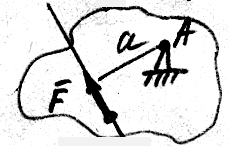 a
A
F̄